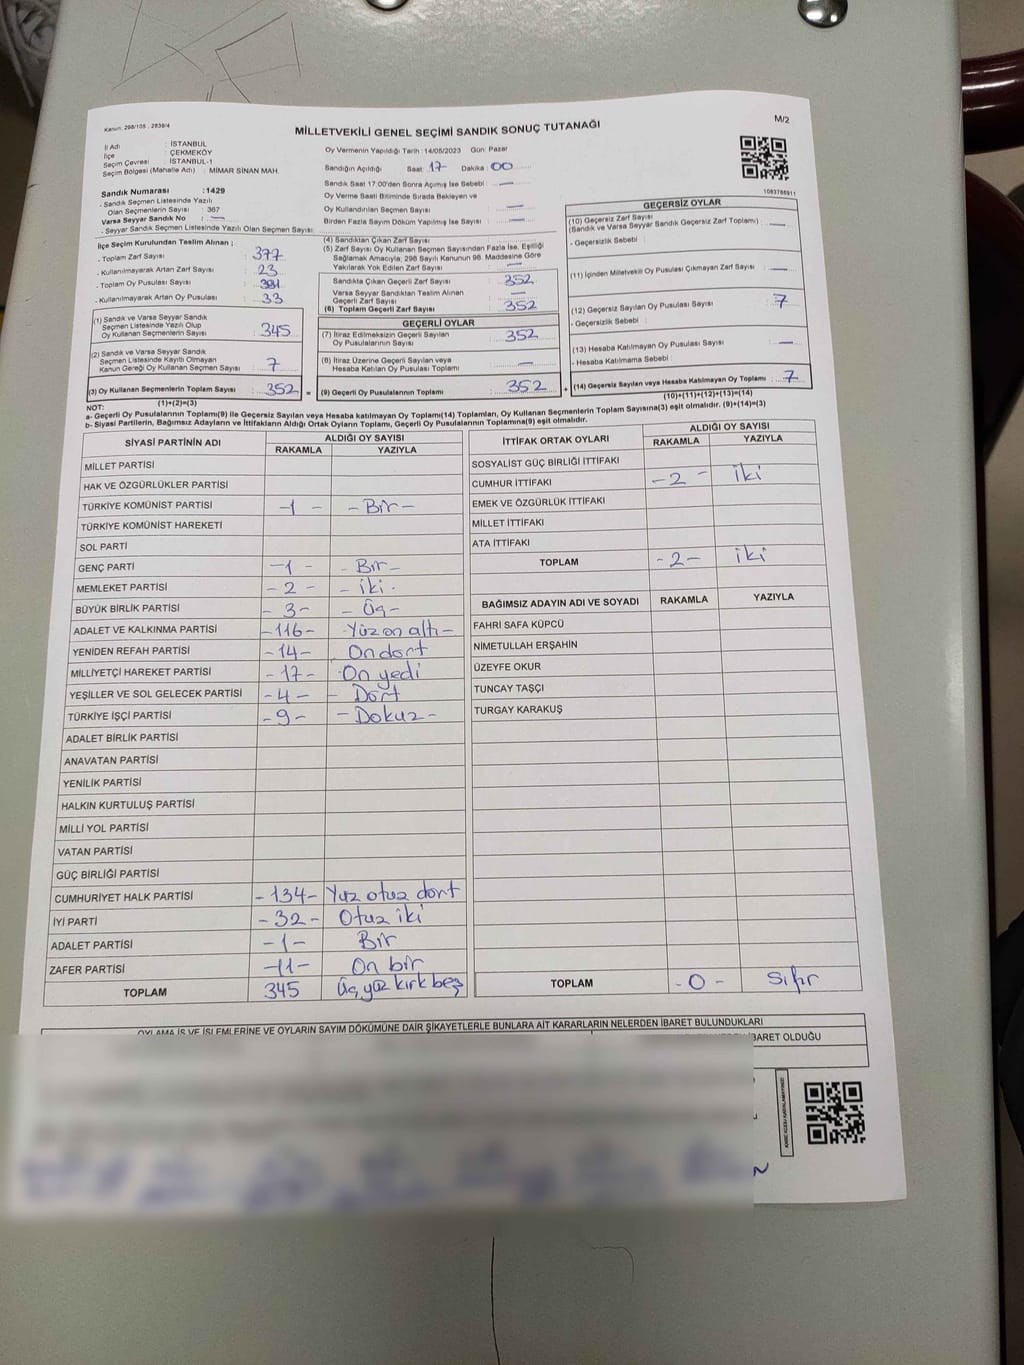 Kanun: 298/105 , 2839/4
MİLLETVEKİLİ GENEL SEÇİMİ SANDIK SONUÇ TUTANAĞI
M/2
İl Adı : İSTANBUL
İlçe : ÇEKMEKÖY
Seçim Çevresi : İSTANBUL-1
Seçim Bölgesi (Mahalle Adı) : MİMAR SİNAN MAH.
Oy Vermenin Yapıldığı Tarih : 14/05/2023 Gün: Pazar
Sandığın Açıldığı Saat: 17 Dakika : 00
Sandık Saat 17:00'den Sonra Açımış İse Sebebi : —
Oy Verme Saati Bitiminde Sırada Bekleyen ve
Oy Kullandırılan Seçmen Sayısı : —
Birden Fazla Sayım Döküm Yapılmış İse Sayısı : —
1083786911
Sandık Numarası : 1429
- Sandık Seçmen Listesinde Yazılı
Olan Seçmenlerin Sayısı : 367
Varsa Seyyar Sandık No : —
- Seyyar Sandık Seçmen Listesinde Yazılı Olan Seçmen Sayısı :
İlçe Seçim Kurulundan Teslim Alınan ;
- Toplam Zarf Sayısı : 377
- Kullanılmayarak Artan Zarf Sayısı : 23
- Toplam Oy Pusulası Sayısı :
- Kullanılmayarak Artan Oy Pusulası : 33
(1) Sandık ve Varsa Seyyar Sandık
Seçmen Listesinde Yazılı Olup
Oy Kullanan Seçmenlerin Sayısı : 345
(2) Sandık ve Varsa Seyyar Sandık
Seçmen Listesinde Kayıtlı Olmayan
Kanun Gereği Oy Kullanan Seçmen Sayısı : 7
(3) Oy Kullanan Seçmenlerin Toplam Sayısı : 352 =
(1)+(2)=(3)
(4) Sandıktan Çıkan Zarf Sayısı :
(5) Zarf Sayısı Oy Kullanan Seçmen Sayısından Fazla İse, Eşitliği
Sağlamak Amacıyla, 298 Sayılı Kanunun 98. Maddesine Göre
Yakılarak Yok Edilen Zarf Sayısı : —
Sandıkta Çıkan Geçerli Zarf Sayısı : 352
Varsa Seyyar Sandıktan Teslim Alınan
Geçerli Zarf Sayısı : —
(6) Toplam Geçerli Zarf Sayısı : 352
GEÇERLİ OYLAR
(7) İtiraz Edilmeksizin Geçerli Sayılan
Oy Pusulalarının Sayısı : 352
(8) İtiraz Üzerine Geçerli Sayılan veya
Hesaba Katılan Oy Pusulası Toplamı : —
(9) Geçerli Oy Pusulalarının Toplamı : 352 +
GEÇERSİZ OYLAR
(10) Geçersiz Zarf Sayısı
(Sandık ve Varsa Seyyar Sandık Geçersiz Zarf Toplamı) : —
- Geçersizlik Sebebi :
(11) İçinden Milletvekili Oy Pusulası Çıkmayan Zarf Sayısı : —
(12) Geçersiz Sayılan Oy Pusulası Sayısı : 7
- Geçersizlik Sebebi :
(13) Hesaba Katılmayan Oy Pusulası Sayısı : —
- Hesaba Katılmama Sebebi :
(14) Geçersiz Sayılan veya Hesaba Katılmayan Oy Toplamı : 7
(10)+(11)+(12)+(13)=(14)
NOT:
a- Geçerli Oy Pusulalarının Toplamı(9) ile Geçersiz Sayılan veya Hesaba katılmayan Oy Toplamı(14) Toplamları, Oy Kullanan Seçmenlerin Toplam Sayısına(3) eşit olmalıdır. (9)+(14)=(3)
b- Siyasi Partilerin, Bağımsız Adayların ve İttifakların Aldığı Ortak Oyların Toplamı, Geçerli Oy Pusulalarının Toplamına(9) eşit olmalıdır.
SİYASİ PARTİNİN ADI ALDIĞI OY SAYISI
RAKAMLA YAZIYLA
MİLLET PARTİSİ
HAK VE ÖZGÜRLÜKLER PARTİSİ
TÜRKİYE KOMÜNİST PARTİSİ -1 - - Bir -
TÜRKİYE KOMÜNİST HAREKETİ
SOL PARTİ
GENÇ PARTİ -1 - - Bir -
MEMLEKET PARTİSİ - 2 - - iki -
BÜYÜK BİRLİK PARTİSİ - 3 - - Üç -
ADALET VE KALKINMA PARTİSİ -116- - Yüz on altı -
YENİDEN REFAH PARTİSİ -14- On dört
MİLLİYETÇİ HAREKET PARTİSİ -17- - On yedi
YEŞİLLER VE SOL GELECEK PARTİSİ -4- - Dört
TÜRKİYE İŞÇİ PARTİSİ -9- - Dokuz -
ADALET BİRLİK PARTİSİ
ANAVATAN PARTİSİ
YENİLİK PARTİSİ
HALKIN KURTULUŞ PARTİSİ
MİLLİ YOL PARTİSİ
VATAN PARTİSİ
GÜÇ BİRLİĞİ PARTİSİ
CUMHURİYET HALK PARTİSİ - 134 - Yüz otuz dört
İYİ PARTİ - 32 - Otuz iki
ADALET PARTİSİ -1- Bir
ZAFER PARTİSİ -11- On bir
TOPLAM 345 Üç yüz kırk beş
İTTİFAK ORTAK OYLARI ALDIĞI OY SAYISI
RAKAMLA YAZIYLA
SOSYALİST GÜÇ BİRLİĞİ İTTİFAKI
CUMHUR İTTİFAKI -2- iki
EMEK VE ÖZGÜRLÜK İTTİFAKI
MİLLET İTTİFAKI
ATA İTTİFAKI
TOPLAM -2- iki
BAĞIMSIZ ADAYIN ADI VE SOYADI RAKAMLA YAZIYLA
FAHRİ SAFA KÜPCÜ
NİMETULLAH ERŞAHİN
ÜZEYFE OKUR
TUNCAY TAŞÇI
TURGAY KARAKUŞ
TOPLAM - 0 - Sıfır
OYLAMA İŞ VE İŞLEMLERİNE VE OYLARIN SAYIM DÖKÜMÜNE DAİR ŞİKAYETLERLE BUNLARA AİT KARARLARIN NELERDEN İBARET BULUNDUKLARI
İBARET OLDUĞU